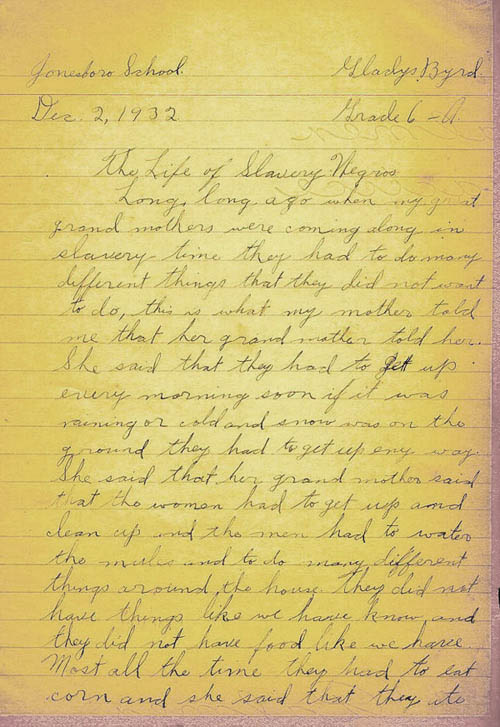 Jonesboro School. Gladys Byrd.
Dec. 2, 1932 Grade 6-A
The Life of Slavery Negros
Long, long ago when my great
grand mothers were coming along in
slavery time they had to do many
different things that they did not want
to do, this is what my mother told
me that her grand mother told her.
She said that they had to get up
every morning soon if it was
raining or cold and snow was on the
ground they had to get up eny way.
She said that her grand mother said
that the women had to get up and
clean up and the men had to water
the mules and to do many different
things around the house. They did not
have things like we have know, and
they did not have food like we have.
Most all the time they had to eat
corn and she said that they ate